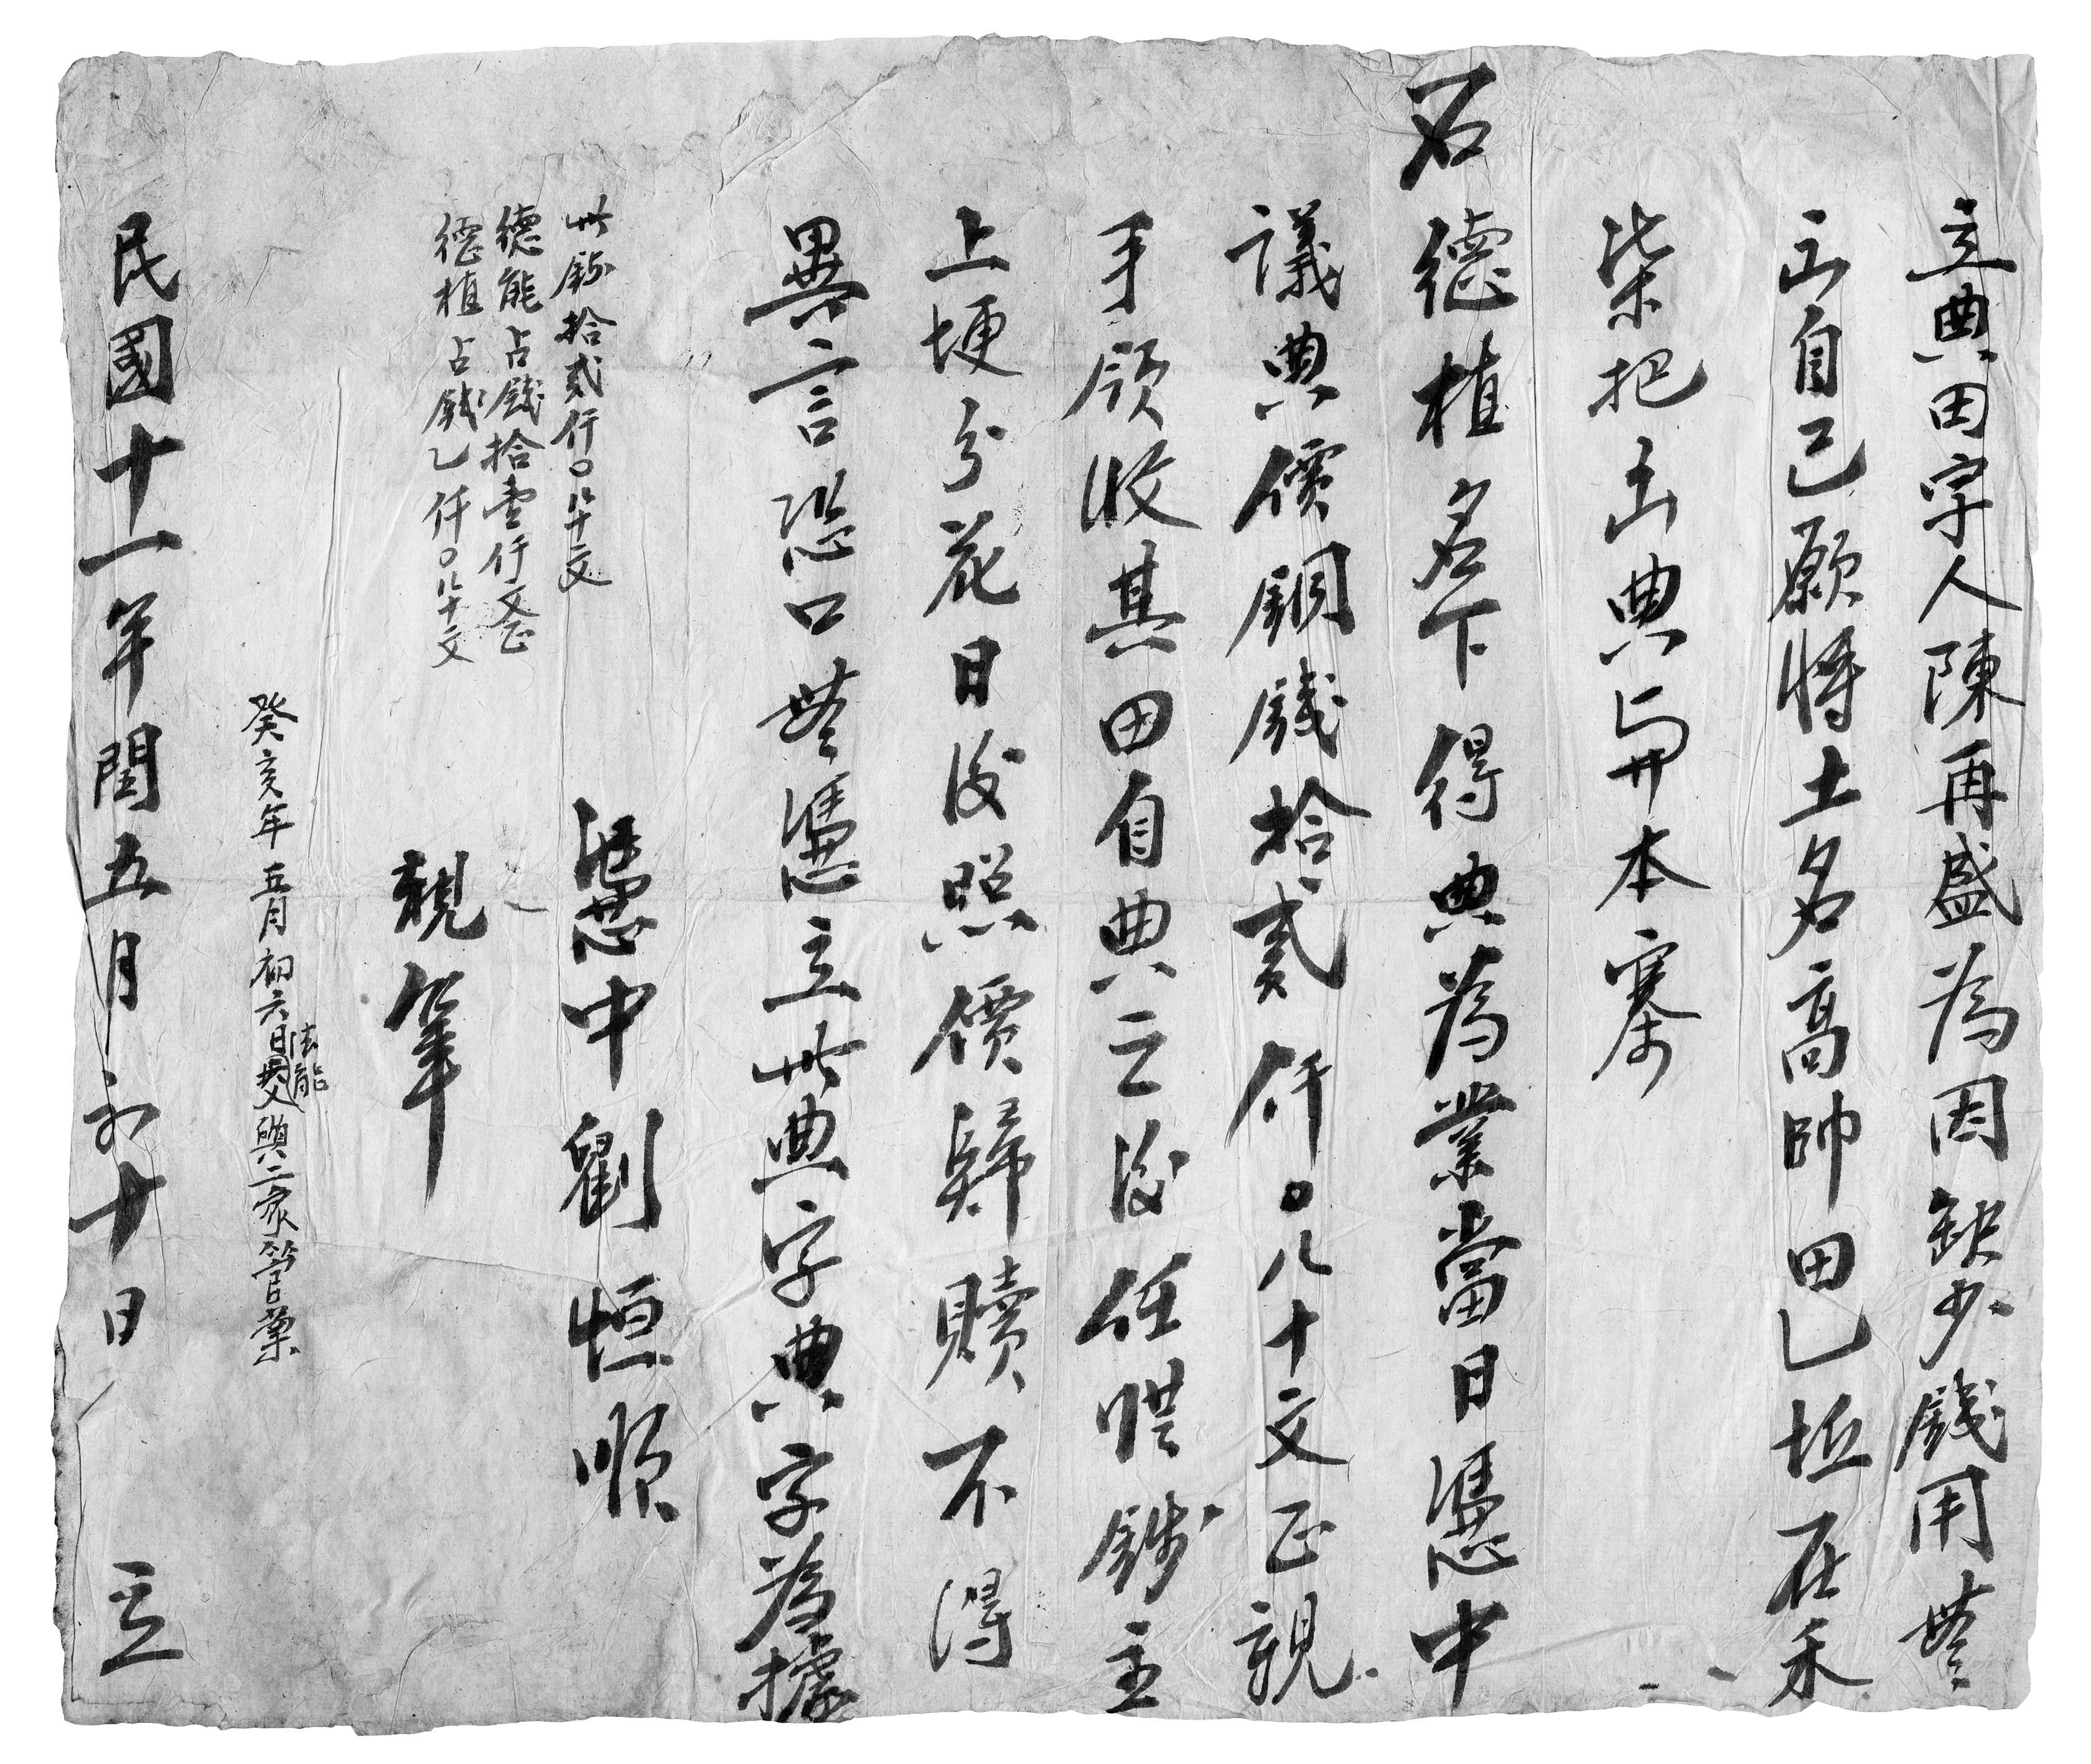 立典田字人陳再盛為因缺少錢用無
出自己願将土名高帥田乚坵在禾
柴把出典與本寨
石德植名下得典為業當日憑中
議典價銅錢拾貳仟〇八十文正親
手領收其田自典之後任憑錢主
上埂分花日後照價歸贖不得
異言恐口無憑立此典字典字為據
憑中劉恒順
此錢拾貳仟〇八十文
德能占錢拾壹仟文正
德植占錢乙仟〇八十文
親筆
癸亥年五月初六日法能父與二家管業
民國十一年閏五月初十日 立